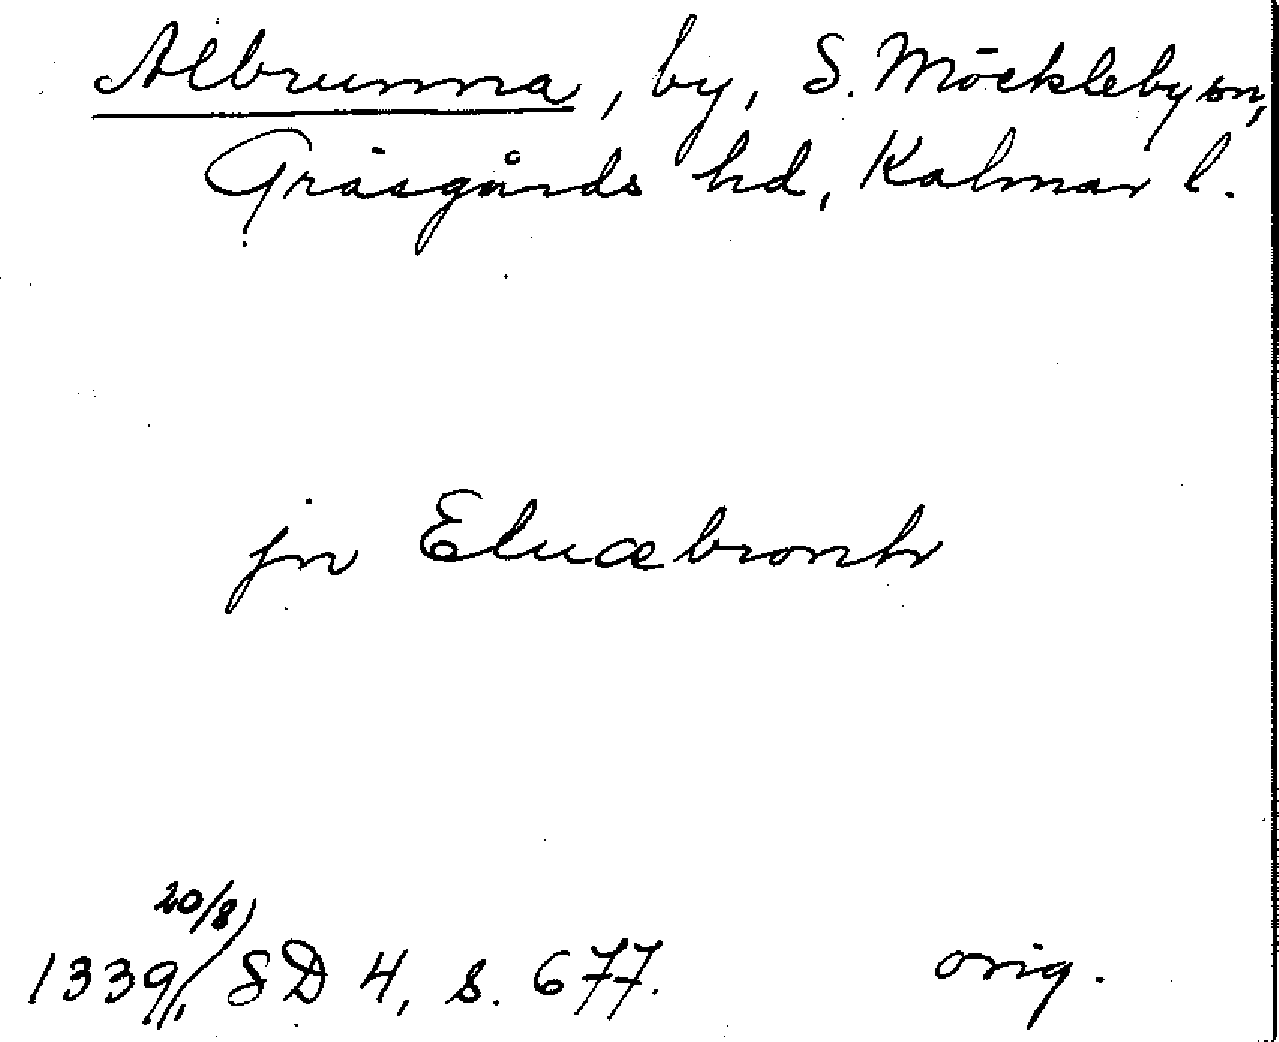 Albrunna, by, S. Möckleby sn,
Gräsgårds hd, Kalmar l.
jn Eluæbronh
20/8)
1339 SD 4, s. 677.
orig.